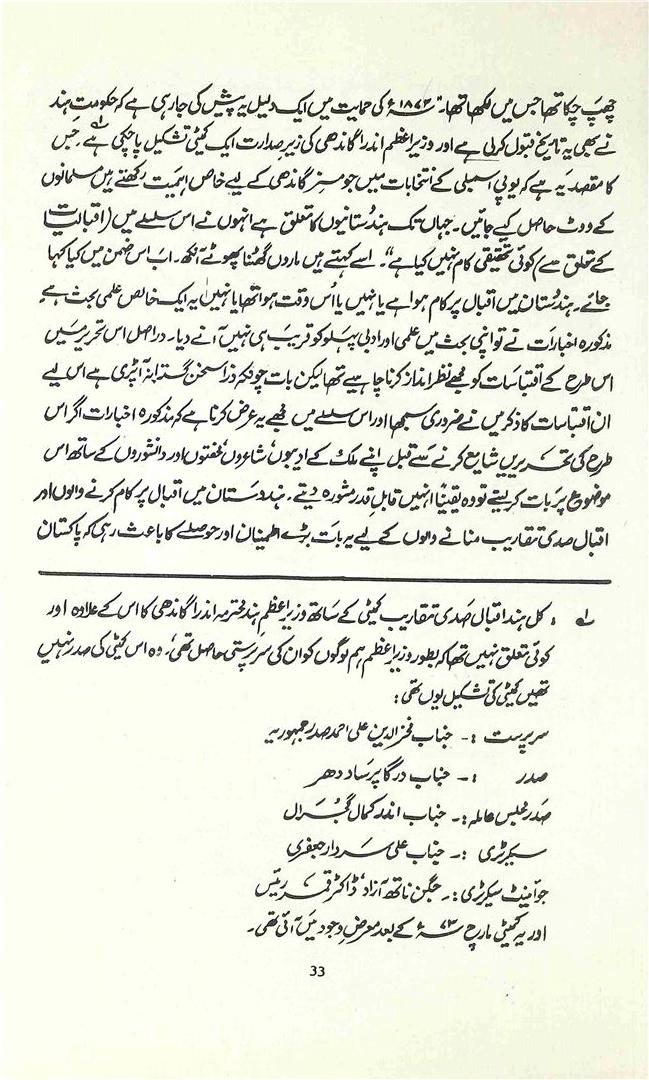 چھپ چکا تھا جس میں لکھا تھا۔ "۱۸۷۳ء کی حمایت میں ایک دلیل یہ پیش کی جا رہی ہے کہ حکومتِ ہند
نے بھی یہ تاریخ قبول کر لی ہے اور وزیرِ اعظم اندرا گاندھی کی زیرِ صدارت ایک کمیٹی تشکیل پا چکی ہے۔ لہ جس
کا مقصد یہ ہے کہ یوپی اسمبلی کے انتخابات میں جو مسز گاندھی کے لیے خاص اہمیت رکھتے ہیں مسلمانوں
کے ووٹ حاصل کیے جائیں۔ جہاں تک ہندستانیوں کا تعلق ہے انہوں نے اس سلسلے میں (اقبالیات
کے تعلق سے) کوئی تحقیقی کام نہیں کیا ہے"۔ اسے کہتے ہیں ماروں گھٹنا پھوٹے آنکھ۔ اب اس ضمن میں کیا کہا
جائے۔ ہندستان میں اقبال پر کام ہوا ہے یا نہیں یا اُس وقت ہوا تھا یا نہیں' یہ ایک خالص علمی بحث ہے
مذکورہ اخبارات نے تو اپنی بحث میں علمی اور ادبی پہلو کو قریب ہی نہیں آنے دیا۔ در اصل اس تحریر میں
اس طرح کے اقتباسات کو مجھے نظر انداز کرنا چاہیے تھا لیکن بات چونکہ ذرا سخن گسترانہ آپڑی ہے اس لیے
ان اقتباسات کا ذکر میں نے ضروری سمجھا اور اس سلسلے میں مجھے یہ عرض کرنا ہے کہ مذکورہ اخبارات اگر اس
طرح کی تحریریں شایع کرنے سے قبل اپنے ملک کے ادیبوں' شاعروں' محققوں اور دانشوروں کے ساتھ اس
موضوع پر بات کر لیتے تو وہ یقیناً انہیں قابلِ قدر مشورہ دیتے۔ ہندستان میں اقبال پر کام کرنے والوں اور
اقبال صدی تقاریب منانے والوں کے لیے یہ بات بڑے اطمینان اور حوصلے کا باعث رہی کہ پاکستان
لہ : کل ہند اقبال صدی تقاریب کمیٹی کے ساتھ وزیرِ اعظم ہند محترمہ اندرا گاندھی کا اس کے علاوہ اور
کوئی تعلق نہیں تھا کہ بطور وزیرِ اعظم ہم لوگوں کو ان کی سرپرستی حاصل تھی' وہ اس کمیٹی کی صدر نہیں
تھیں کمیٹی کی تشکیل یوں تھی:
سرپرست :۔ جناب فخرالدین علی احمد صدر جمہوریہ
صدر :۔ جناب درگا پرساد دھر
صدر مجلس عاملہ :۔ جناب اندر کمال گجرال
سیکرٹری :۔ جناب علی سردار جعفری
جوائنٹ سیکرٹری :۔ جگن ناتھ آزاد' ڈاکٹر قمر رئیس
اور یہ کمیٹی مارچ ۷۳ء کے بعد معرضِ وجود میں آئی تھی۔
33